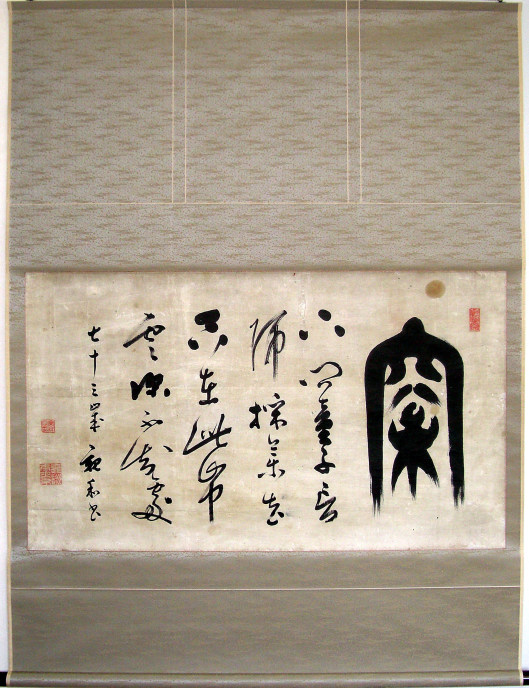 松
下問童子言
師採藥去
只在此山中
雲深不知處
七十三歲親和書